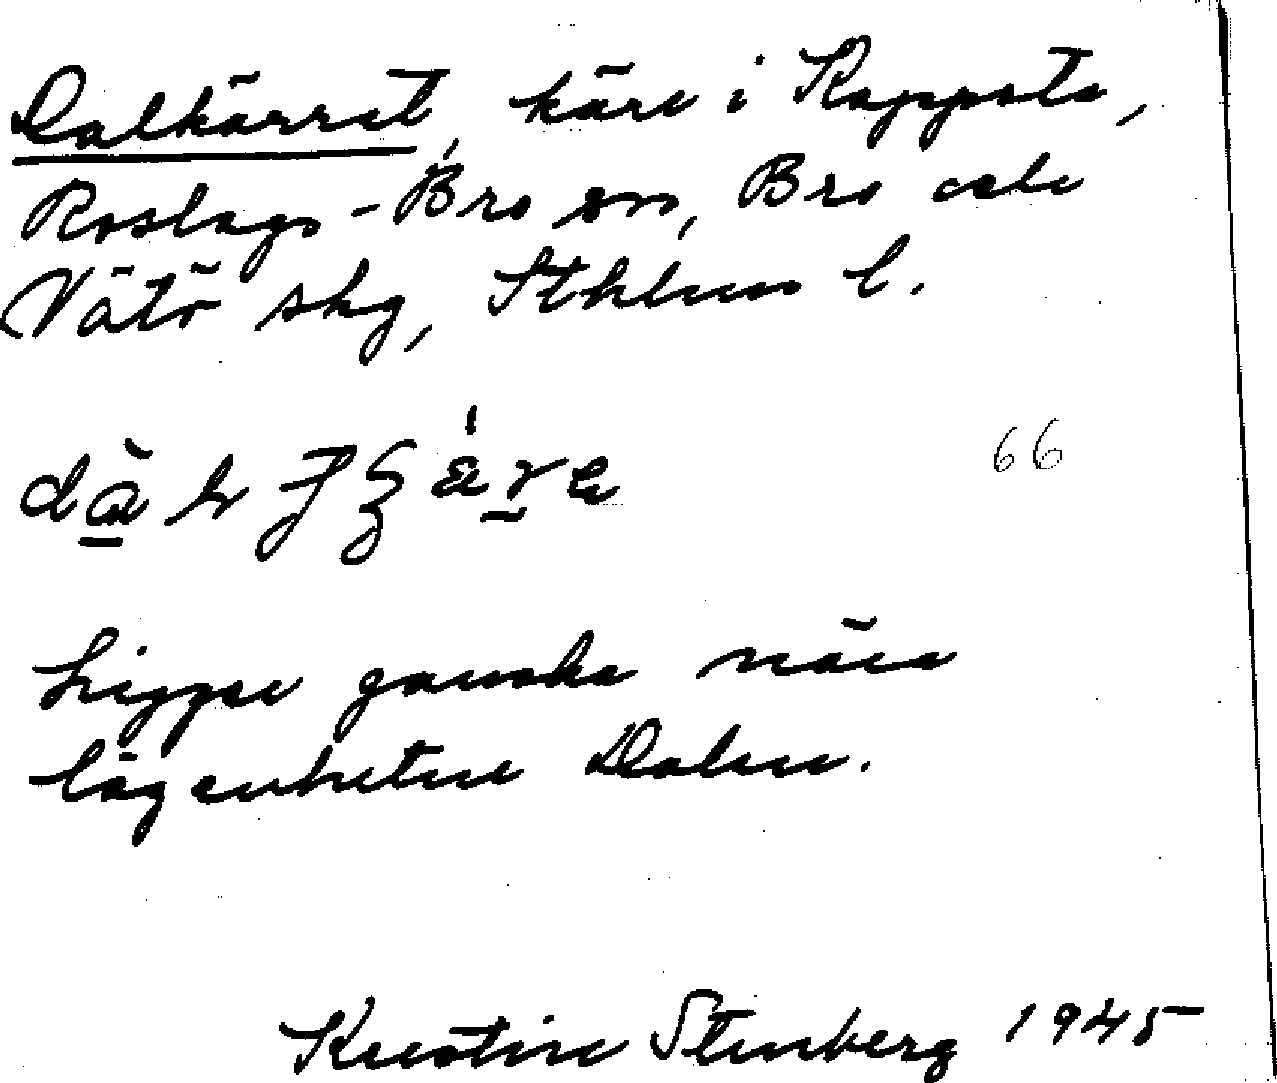 Dalkärret, kärr i Kappsta,
Roslags-Bro sn, Bro och
Vätö skg, Sthlms l.
66
Ligger ganska nära
lägenheten Dalen.
Kerstin Stenberg 1945